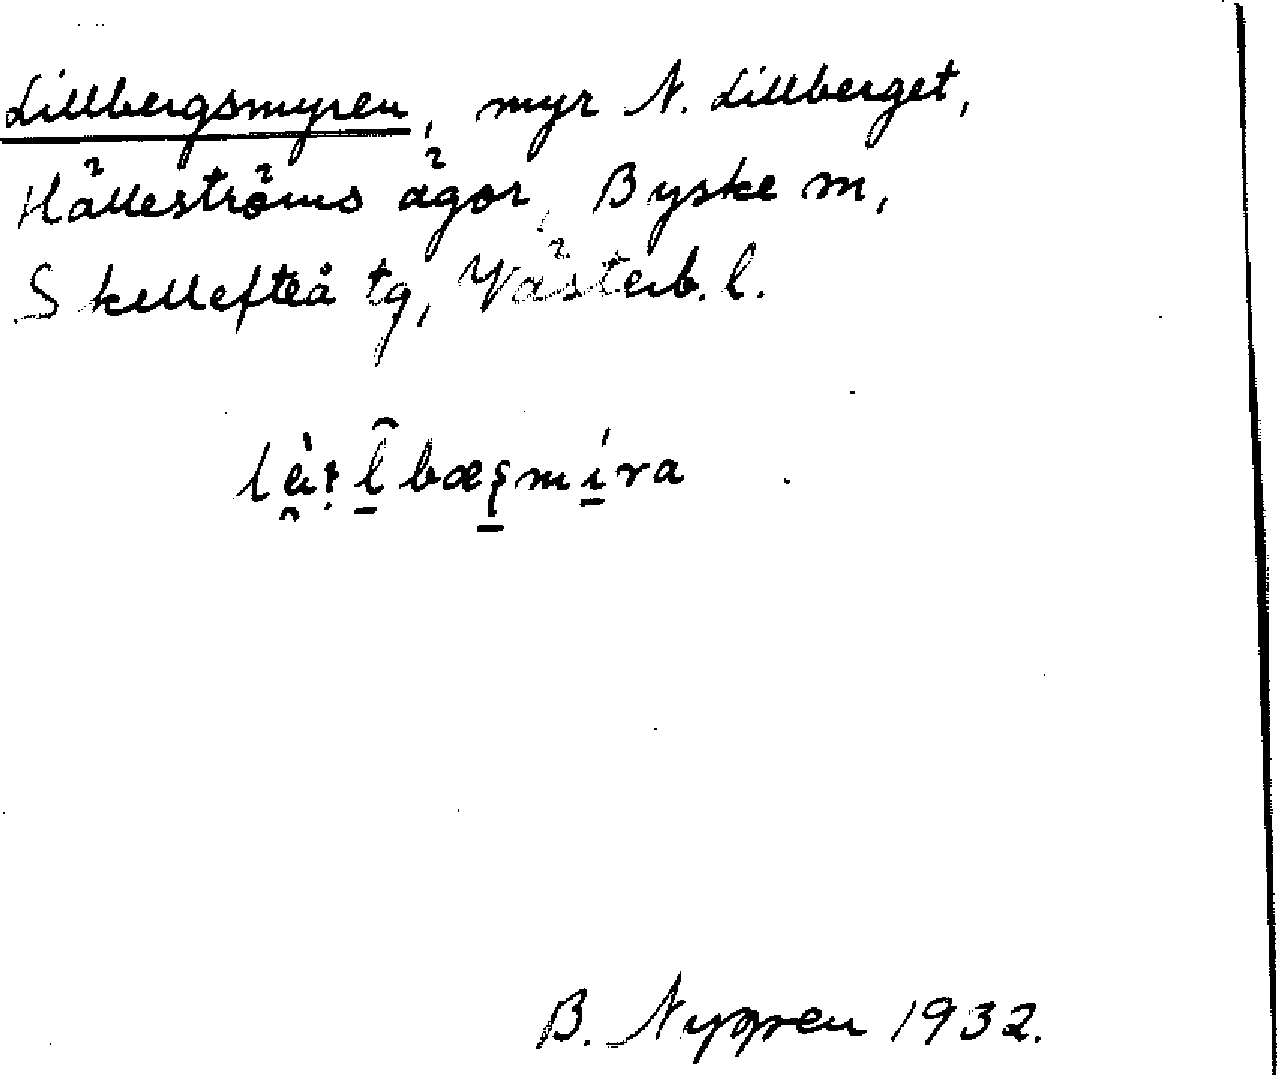 Lillbergsmyren, myr N. Lillberget,
Hälleströms ägor, Byske sn,
Skellefteå tg, Västerb. l.
B. Nygren 1932.